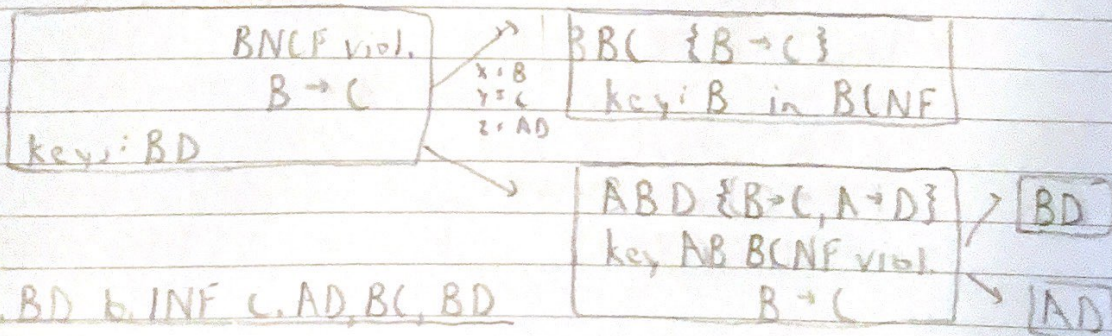 BNCF viol.
B → C
keys: BD
x: B
y: C
z: AD
BBC {B → C}
key: B in BCNF
ABD {B→C, A→D}
key AB BCNF viol.
B → C
BD
AD
BD b. 1NF c. AD, BC, BD